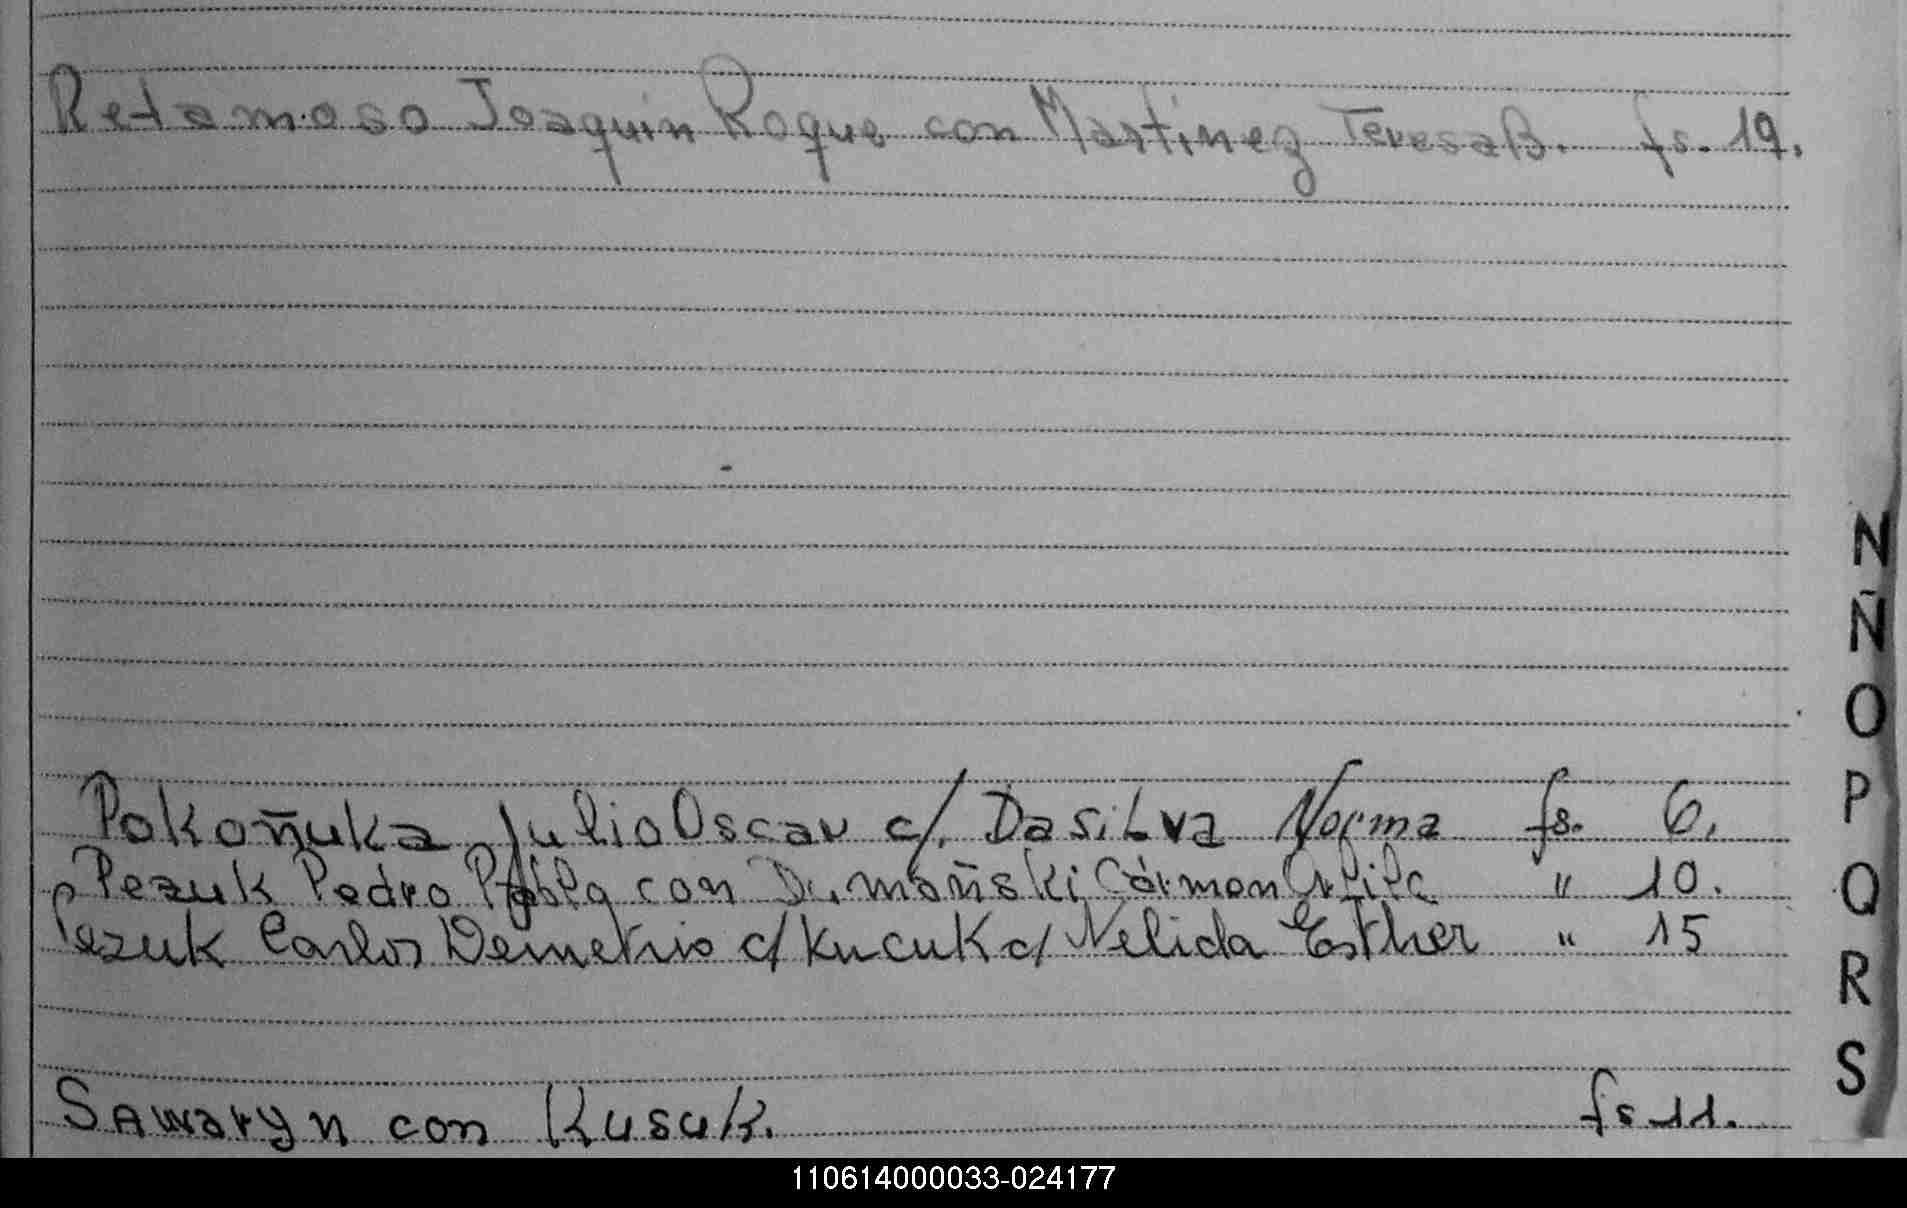 Retamoso Joaquin Roque con Martinez Teresa B. fs. 19.
Pokoñuka Julio Oscar c/. Da Silva Norma fs. 6.
Pezuk Pedro Pablo con Dumañski Cármen " 10.
Pezuk Carlos Demetrio c/ Kucuk c/ Nelida Esther " 15
Sawaryn con Kusuk. fs 11.
N
Ñ
O
P
Q
R
S
110614000033-024177